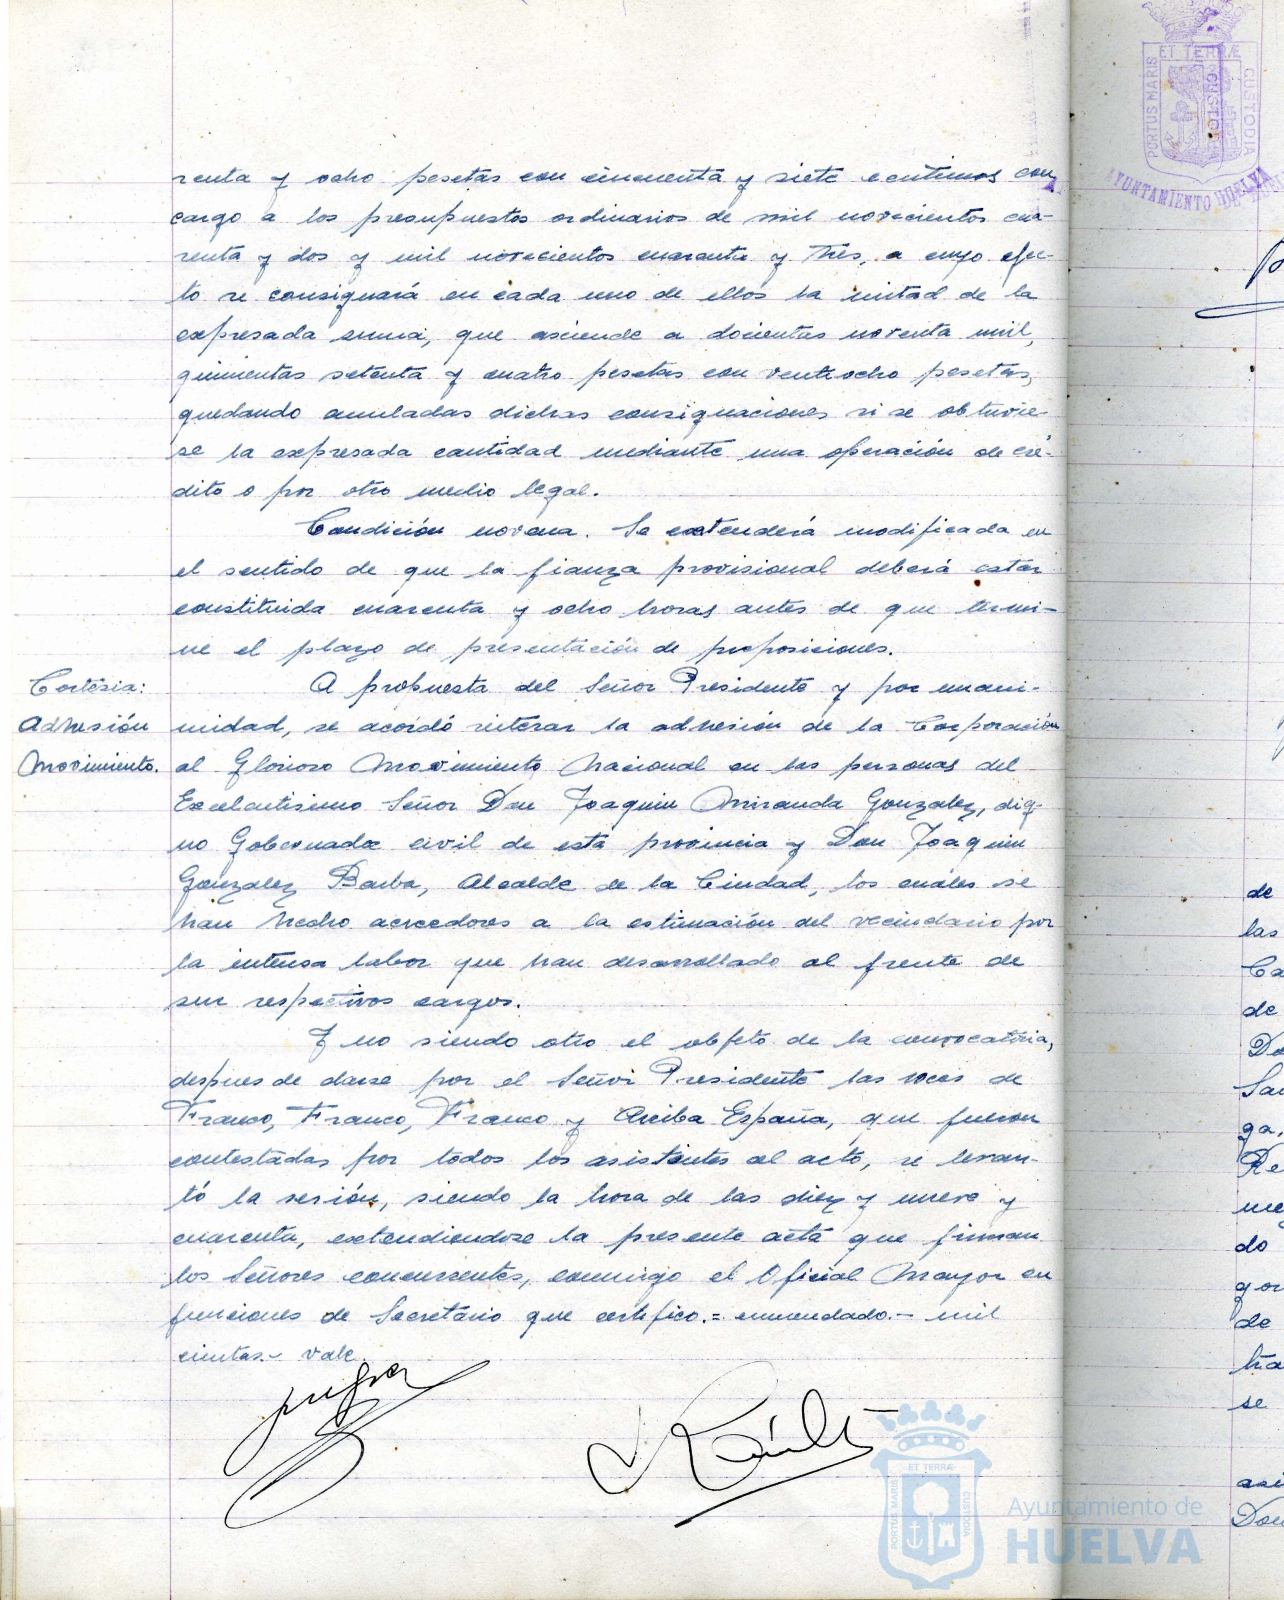 renta y ocho pesetas con cincuenta y siete centimos con
cargo a los presupuestos ordinarios de mil novecientos cua-
renta y dos y mil novecientos cuarenta y tres, a cuyo efec-
to se consignará en cada uno de ellos la mitad de la
expresada suma, que asciende a docientas noventa mil,
quinientas setenta y cuatro pesetas con ventiocho pesetas,
quedando anuladas dichas consignaciones si se obtuvie-
se la expresada cantidad mediante una operación de cré-
dito o por otro medio legal.
Condición novena. Se extenderá modificada en
el sentido de que la fianza provisional deberá estar
constituida cuarenta y ocho horas antes de que termi-
ne el plazo de presentación de proposiciones.
Cortesia:
Adhesión
Movimiento.
A propuesta del Señor Presidente y por unani-
midad, se acordó reiterar la adhesión de la Corporación
al Glorioso Movimiento Nacional en las personas del
Excelentisimo Señor Don Joaquin Miranda Gonzalez, dig-
no Gobernador civil de esta provincia y Don Joaquin
Gonzalez Barba, Alcalde de la Ciudad, los cuáles se
han hecho acreedores a la estimación del vecindario por
la intensa labor que han desarrollado al frente de
sus respectivos cargos.
Y no siendo otro el objeto de la convocatoria,
despues de darse por el Señor Presidente las voces de
Franco, Franco, Franco y Arriba España, que fueron
contestadas por todos los asistentes al acto, se levan-
tó la sesión, siendo la hora de las diez y nueve y
cuarenta, extendiendose la presente acta que firman
los Señores concurrentes, conmigo el Oficial Mayor en
funciones de Secretario que certifico.= enmendado.- mil
cientas.- vale
PORTUS MARIS ET TERRÆ CUSTODIA
AYUNTAMIENTO HUELVA
de
las
Ca
de
Do
Sa
ga,
Re
me
do
gor
de
tra
se
asi
Don
PORTUS MARIS ET TERRÆ CUSTODIA
Ayuntamiento de
HUELVA